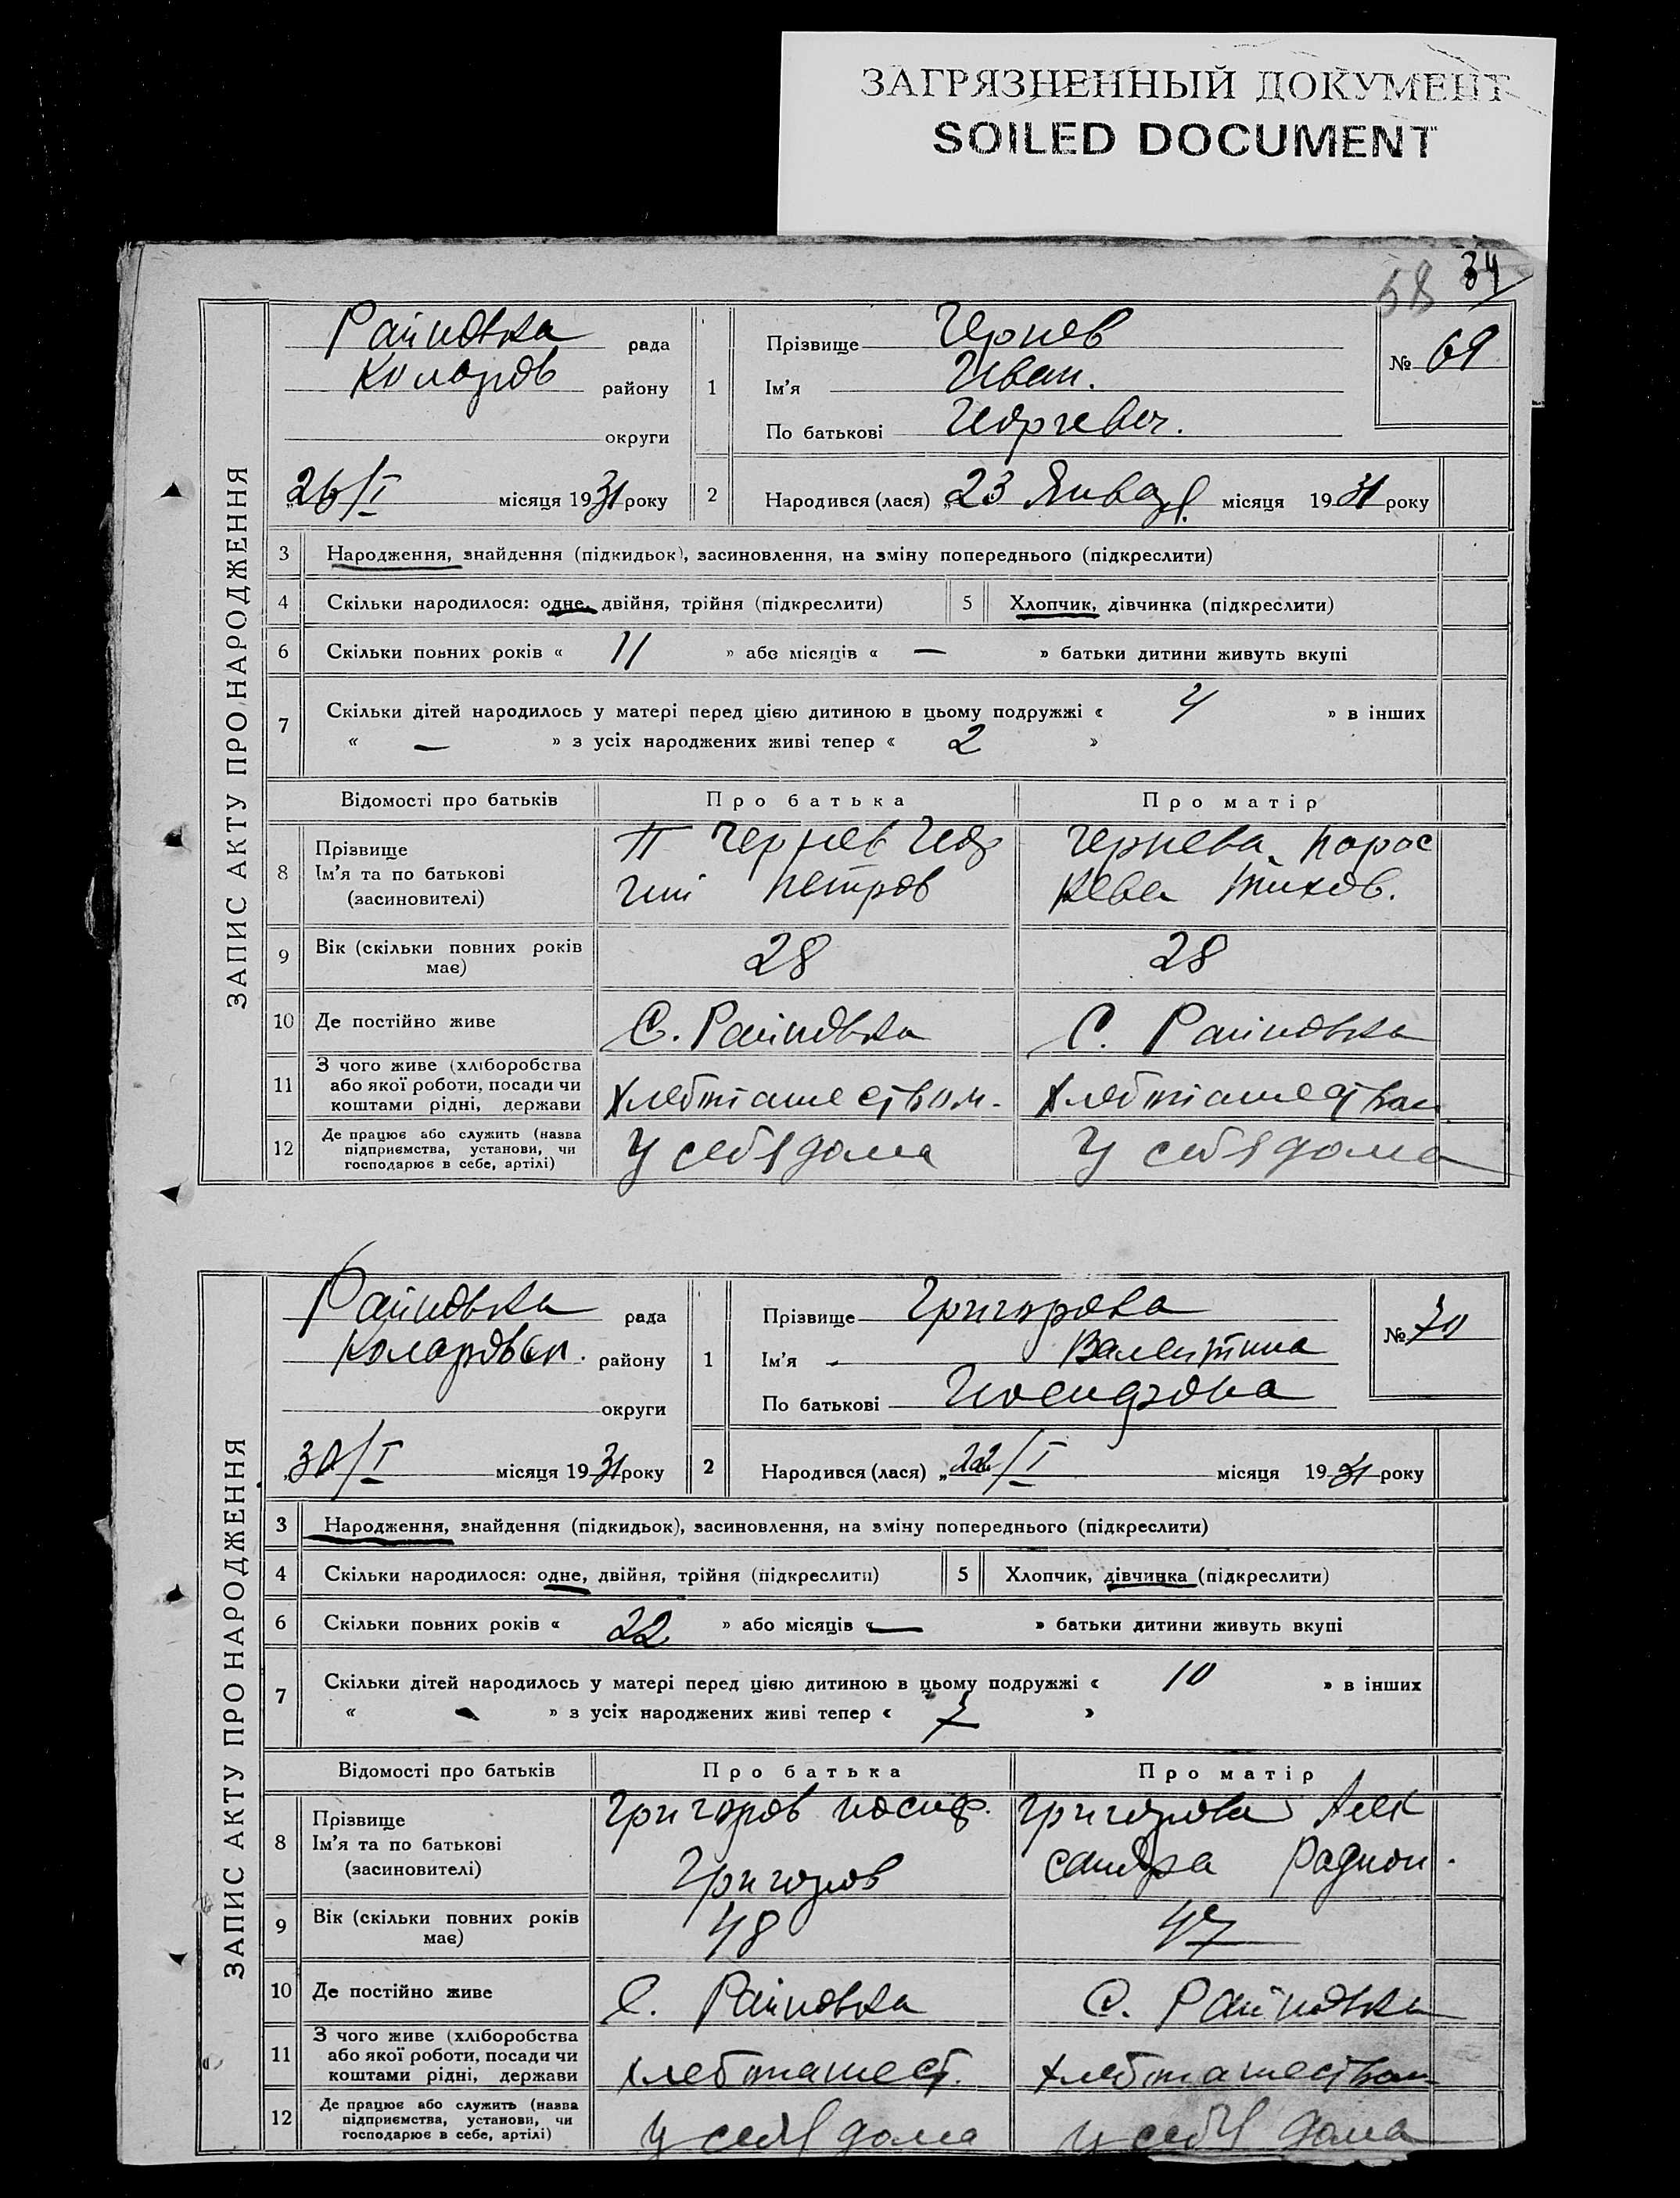 ЗАГРЯЗНЕННЫЙ ДОКУМЕНТ
SOILED DOCUMENT
58 34
ЗАПИС АКТУ ПРО НАРОДЖЕННЯ
Райновка рада
Коларов району
округи
„26/I місяця 1931 року
1
Прізвище Чернев
Ім'я Иван.
По батькові Георгевич.
№ 69
2 Народився (лася) „23 Января місяця 1931 року
3 Народження, знайдення (підкидьок), засиновлення, на зміну попереднього (підкреслити)
4 Скільки народилося: одне, двійня, трійня (підкреслити) 5 Хлопчик, дівчинка (підкреслити)
6 Скільки повних років « 11 » або місяців « — » батьки дитини живуть вкупі
7 Скільки дітей народилось у матері перед цією дитиною в цьому подружжі « 4 » в інших
« — » з усіх народжених живі тепер « 2 »
Відомості про батьків Про батька Про матір
8 Прізвище
Ім'я та по батькові
(засиновителі)
Чернев Геор
гий Петров
Чернева Парас
кева Тихов.
9 Вік (скільки повних років
має) 28 28
10 Де постійно живе С. Райновка С. Райновка
11 З чого живе (хліборобства
або якої роботи, посади чи
коштами рідні, держави
12 Де працює або служить (назва
підприємства, установи, чи
господарює в себе, артілі)
У себя дома У себя дома
ЗАПИС АКТУ ПРО НАРОДЖЕННЯ
Райновка рада
Коларовск. району
округи
„30/I місяця 1931 року
1
Прізвище Григорова
Ім'я Валентина
По батькові Иосифовна
№ 70
2 Народився (лася) „22/I місяця 1931 року
3 Народження, знайдення (підкидьок), засиновлення, на зміну попереднього (підкреслити)
4 Скільки народилося: одне, двійня, трійня (підкреслити) 5 Хлопчик, дівчинка (підкреслити)
6 Скільки повних років « 22 » або місяців « — » батьки дитини живуть вкупі
7 Скільки дітей народилось у матері перед цією дитиною в цьому подружжі « 10 » в інших
« - » з усіх народжених живі тепер « 7 »
Відомості про батьків Про батька Про матір
8 Прізвище
Ім'я та по батькові
(засиновителі)
Григоров Иосиф.
Григоров
Григорова Алек
сандра Радион.
9 Вік (скільки повних років
має) 48 47
10 Де постійно живе С. Райновка С. Райновка
11 З чого живе (хліборобства
або якої роботи, посади чи
коштами рідні, держави
12 Де працює або служить (назва
підприємства, установи, чи
господарює в себе, артілі)
У себя дома У себя дома